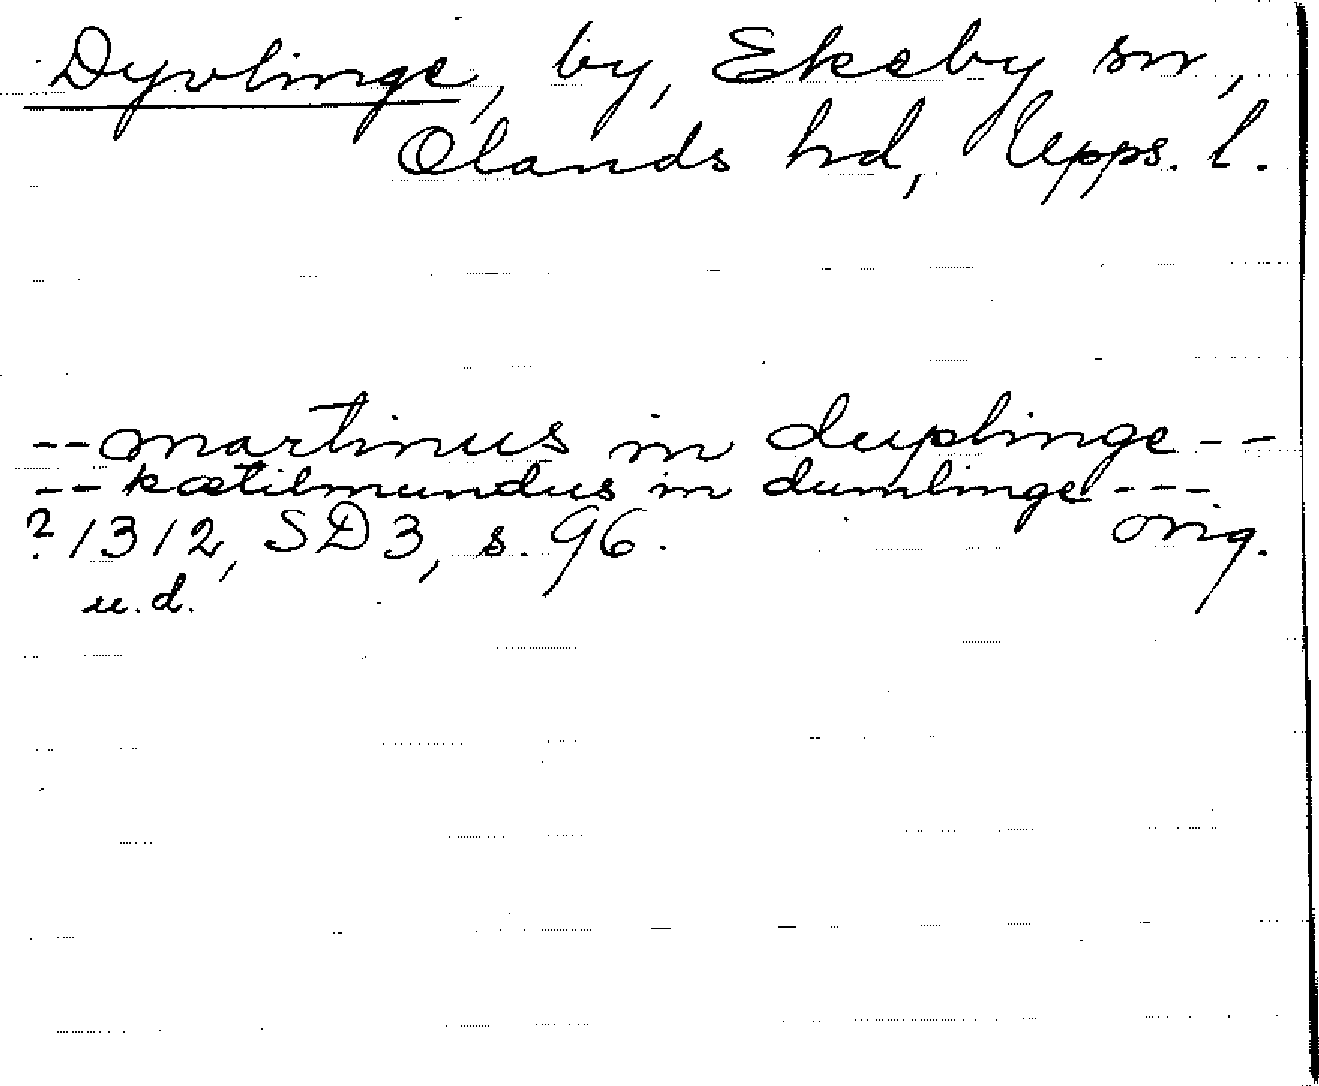 Dyvlinge, by, Ekeby sn,
Olands hd, Upps. l.
-- martinus in duplinge --
-- kætilmundus in dumlinge ---
? 1312, SD3, s. 96. orig.
u.d.